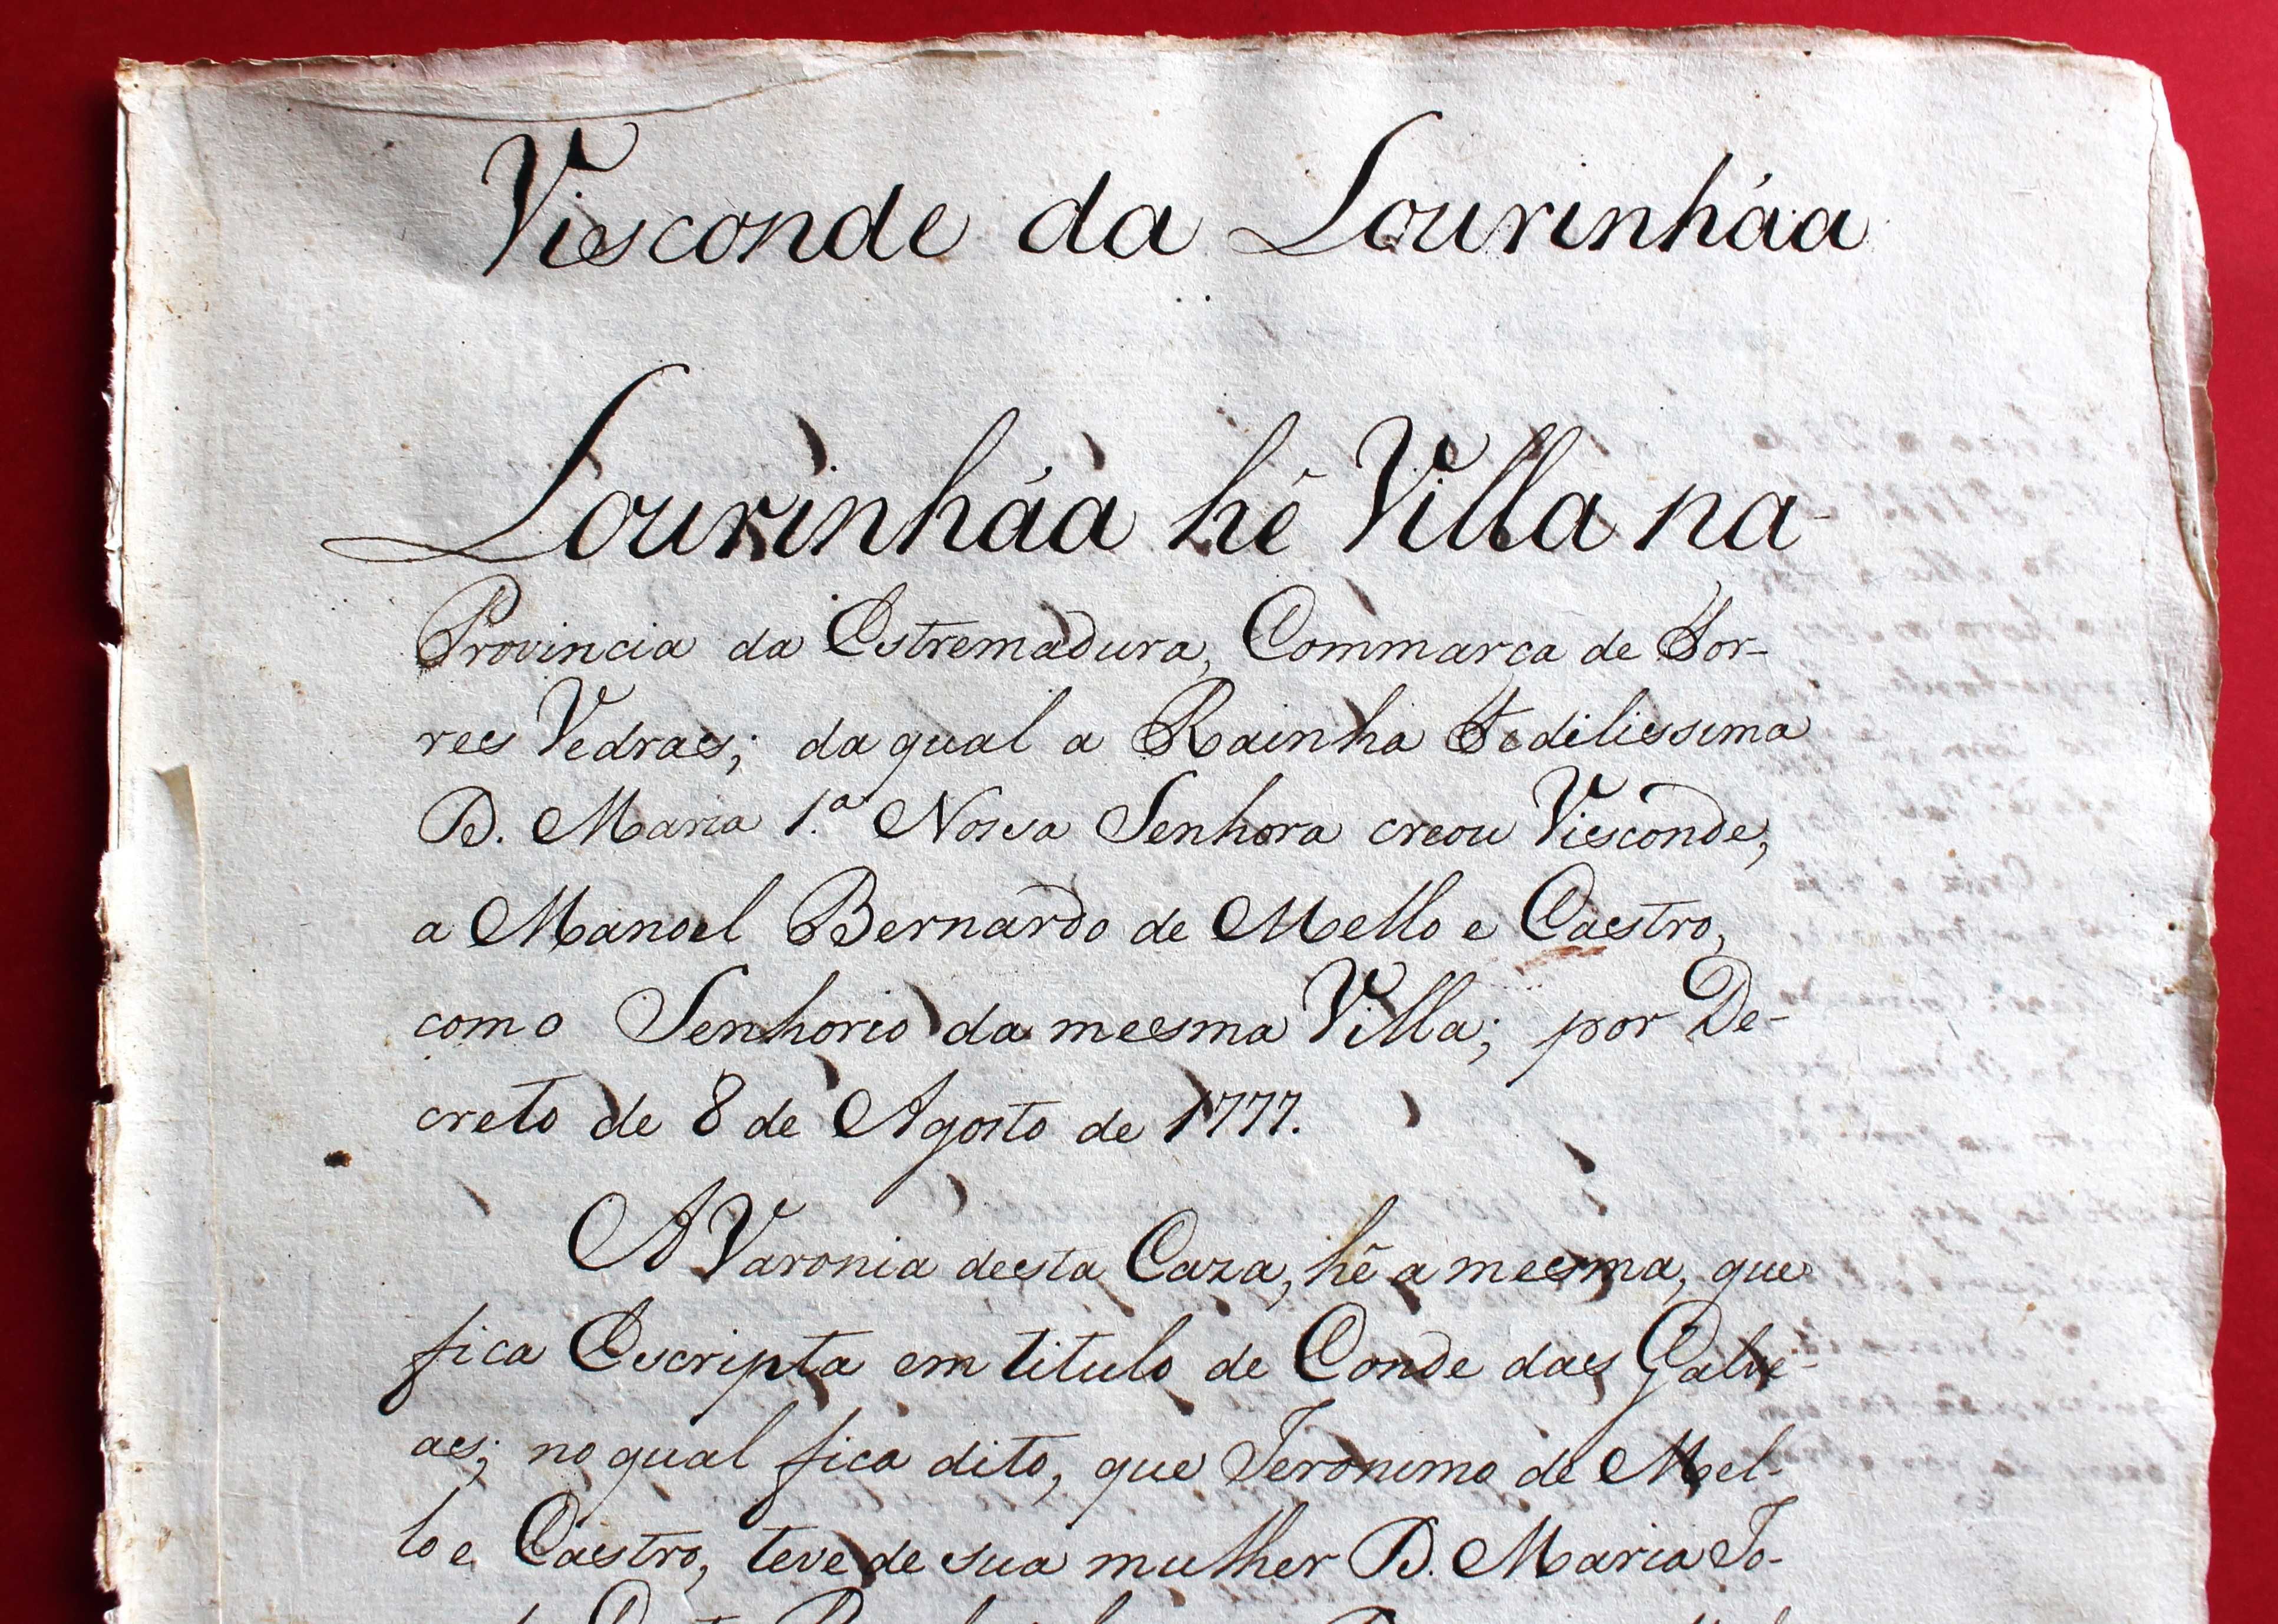 Visconde da Lourinháa
Lourinháa hé Villa na
Provincia da Estremadura, Commarca de Tor-
res Vedras; da qual a Rainha Fedilissima
D. Maria 1.ª Nossa Senhora creou Visconde,
a Manoel Bernardo de Mello e Castro,
como Senhorio da mesma Villa; por De-
creto de 8 de Agosto de 1777.
A Varonia desta Caza, hé a mesma, que
fica Escripta em titulo de Conde das Galve-
as; no qual fica dito, que Jeronimo de Mel-
lo e Castro, teve de sua mulher D. Maria Jo-